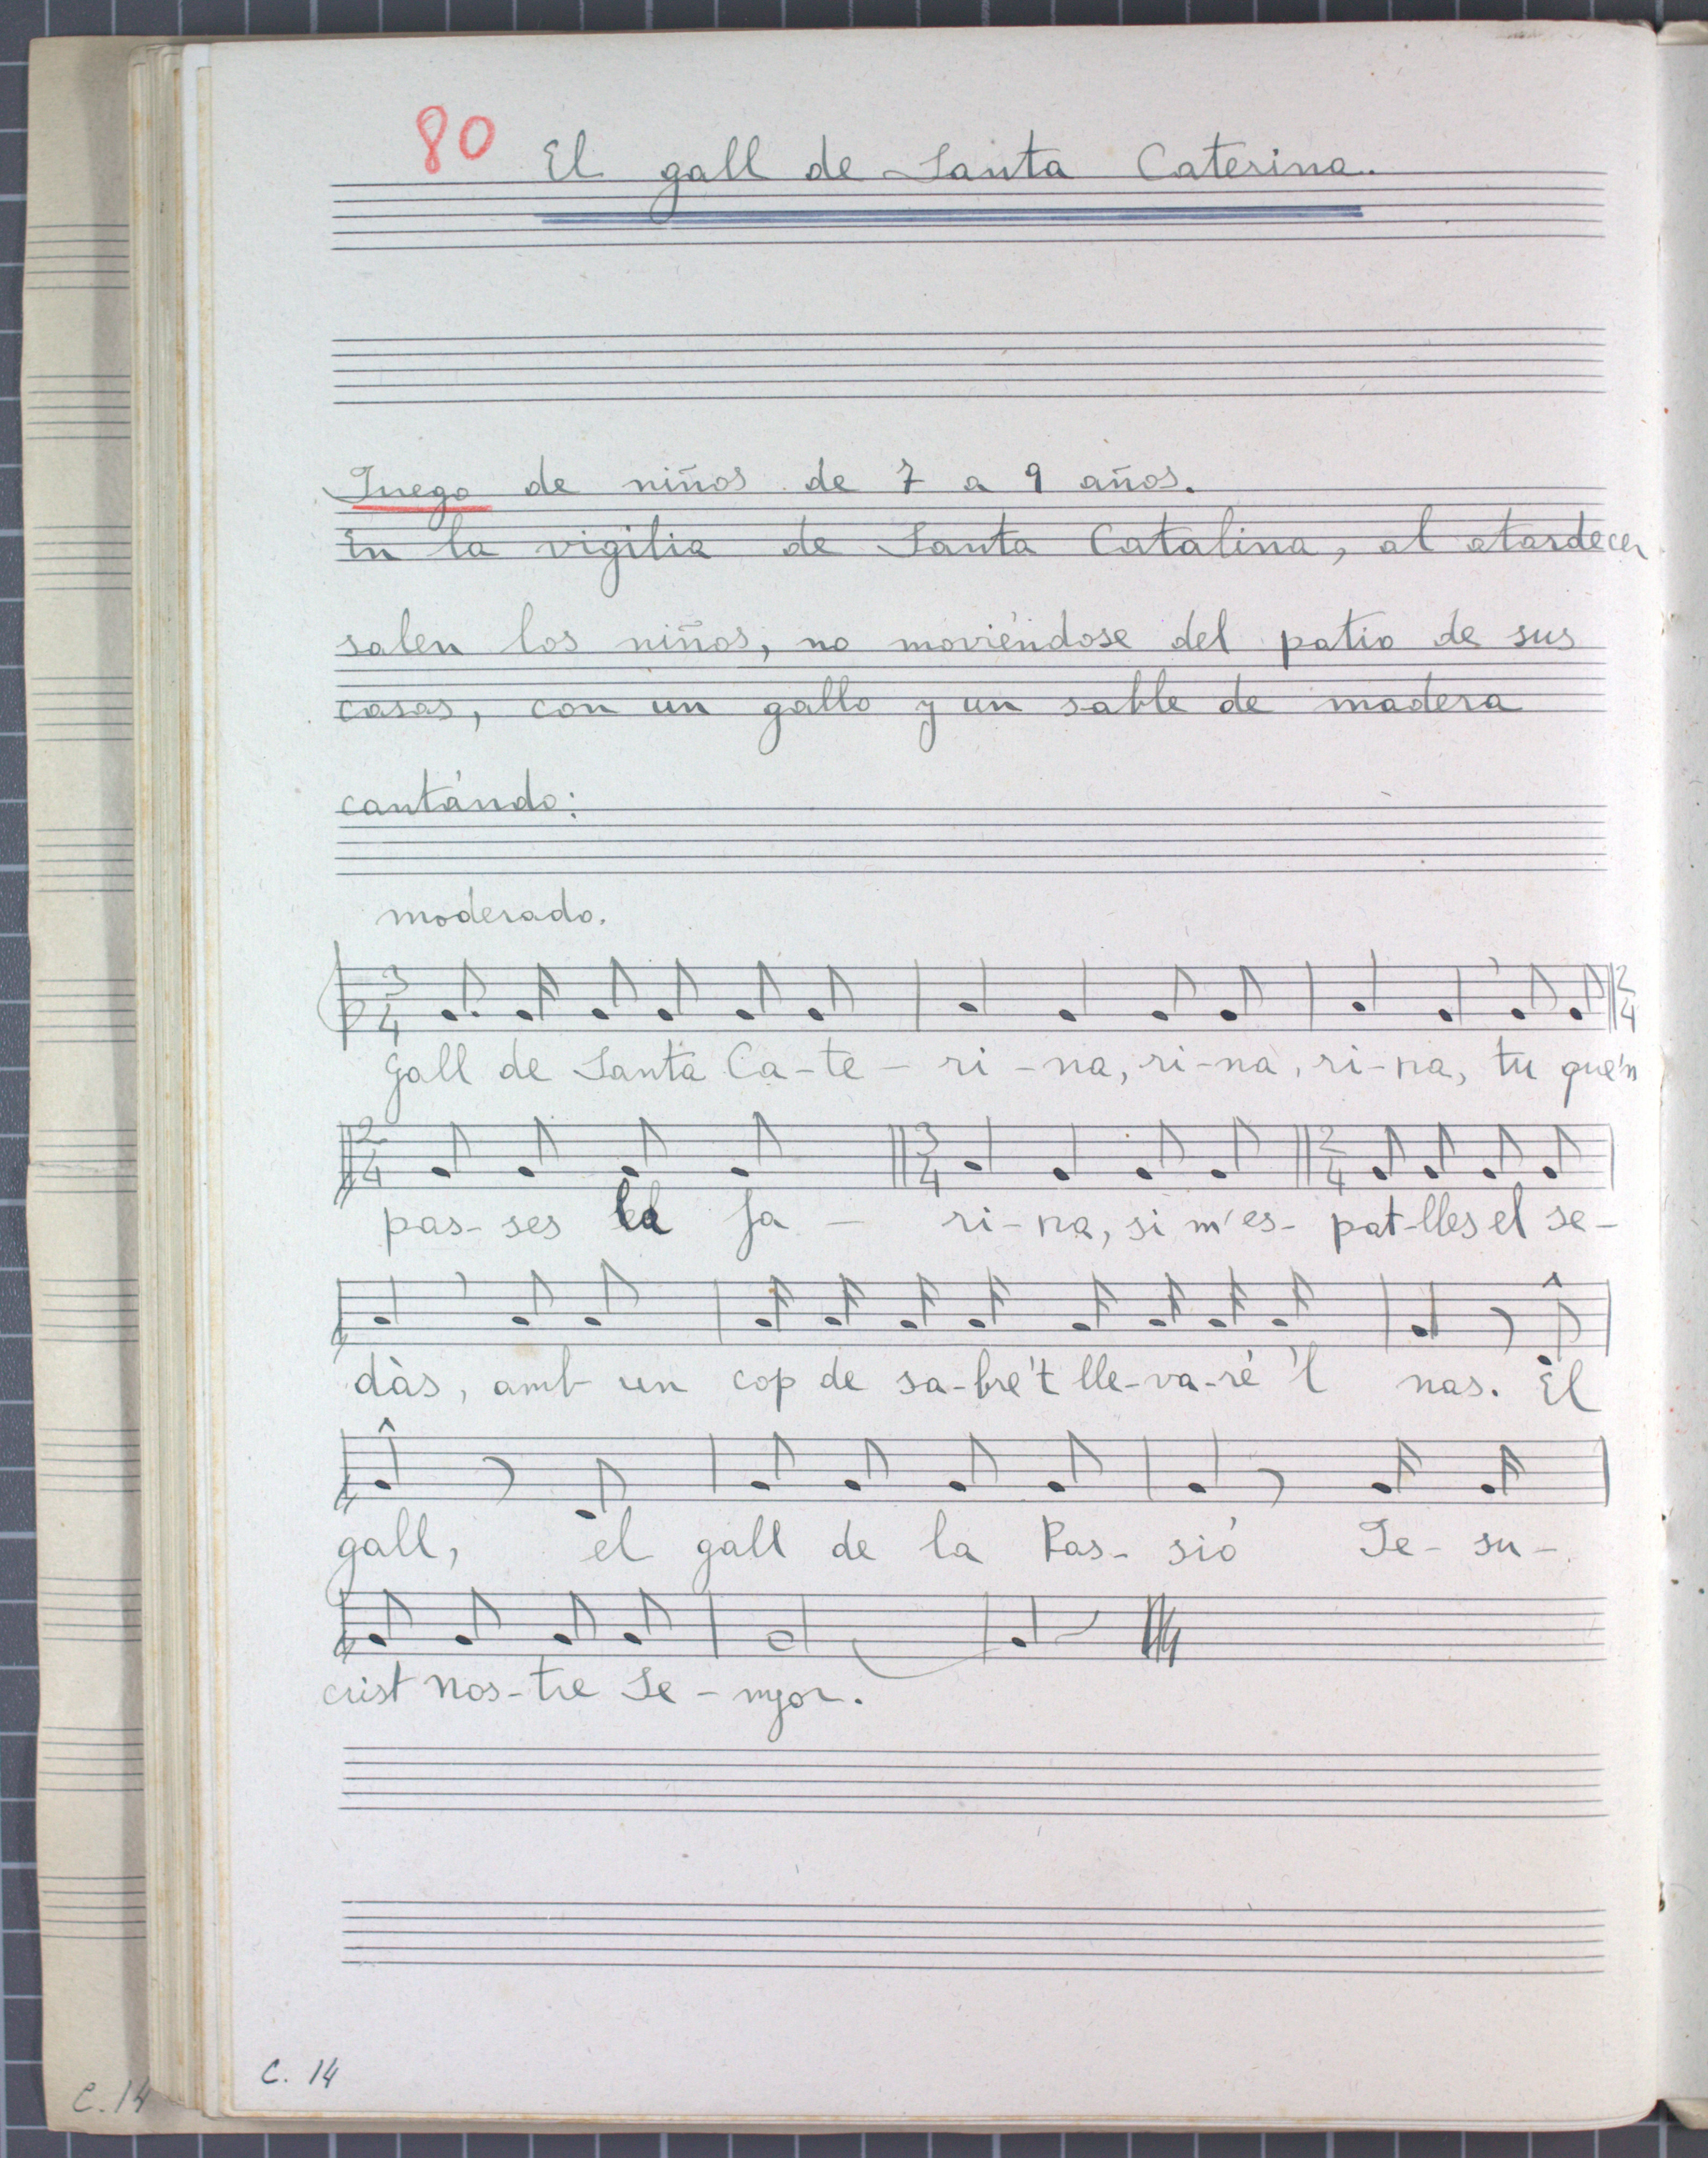 80 El gall de Santa Caterina.
Juego de niños de 7 a 9 años.
En la vigilia de Santa Catalina, al atardecer
salen los niños, no moviéndose del patio de sus
casas, con un gallo y un sable de madera
cantándo:
moderado.
3 4 2 4
Gall de Santa Ca-te-ri-na, ri-na, ri-na, tu que'n
2 4 3 4 2 4
pas-ses la fa-ri-na, si m'es-pat-lles el se-
dàs, amb un cop de sa-bre't lle-va-ré 'l nas. El
gall, el gall de la Pas-sió Je-su-
crist Nos-tre Se-nyor.
C. 14
C. 14